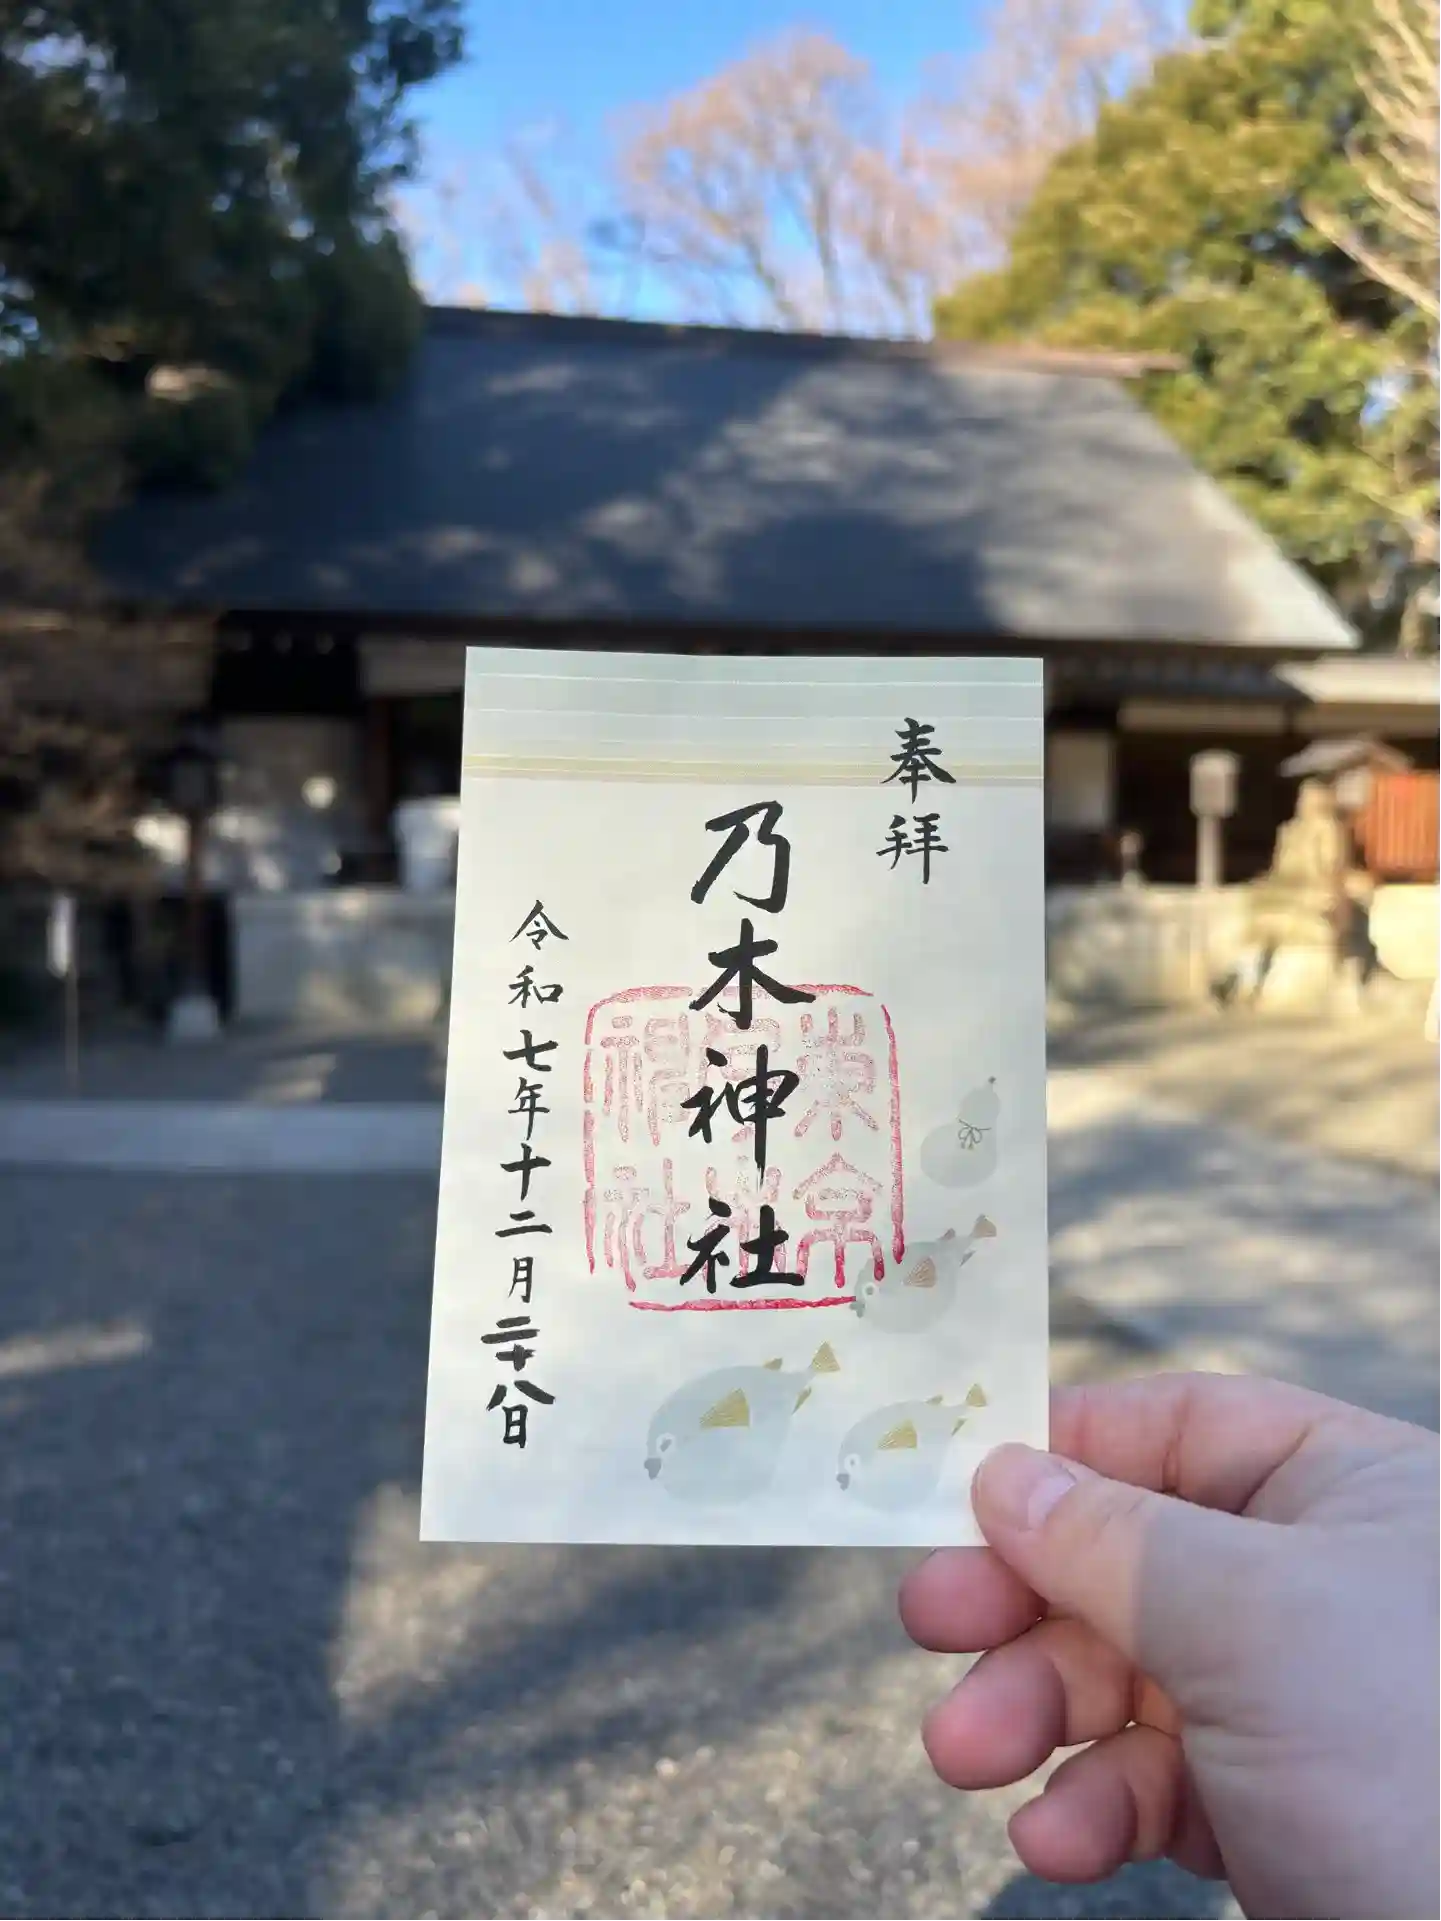 奉拝
乃木神社
東京
神社
令和七年十二月二十八日